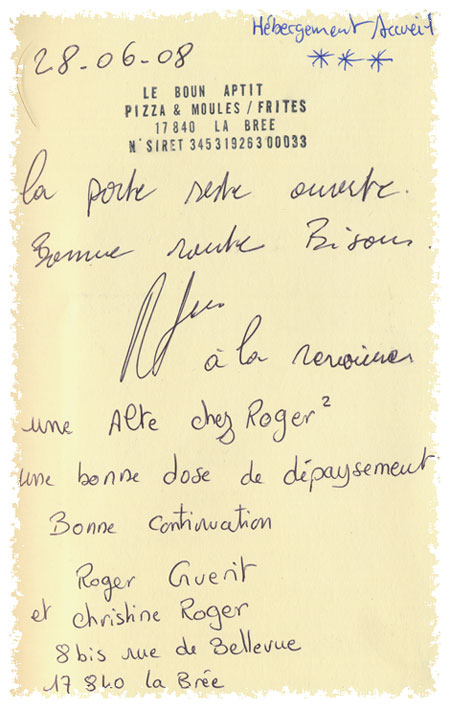 Hébergement Accueil
***
28-06-08
LE BOUN APTIT
PIZZA & MOULES / FRITES
17840 LA BREE
N° SIRET 34531926300033
la porte reste ouverte.
Bonne route Bisous.
à la
une Alte chez Roger²
une bonne dose de dépaysement.
Bonne continuation
Roger Guerit
et christine Roger
8bis rue de Bellevue
17 840 la Brée